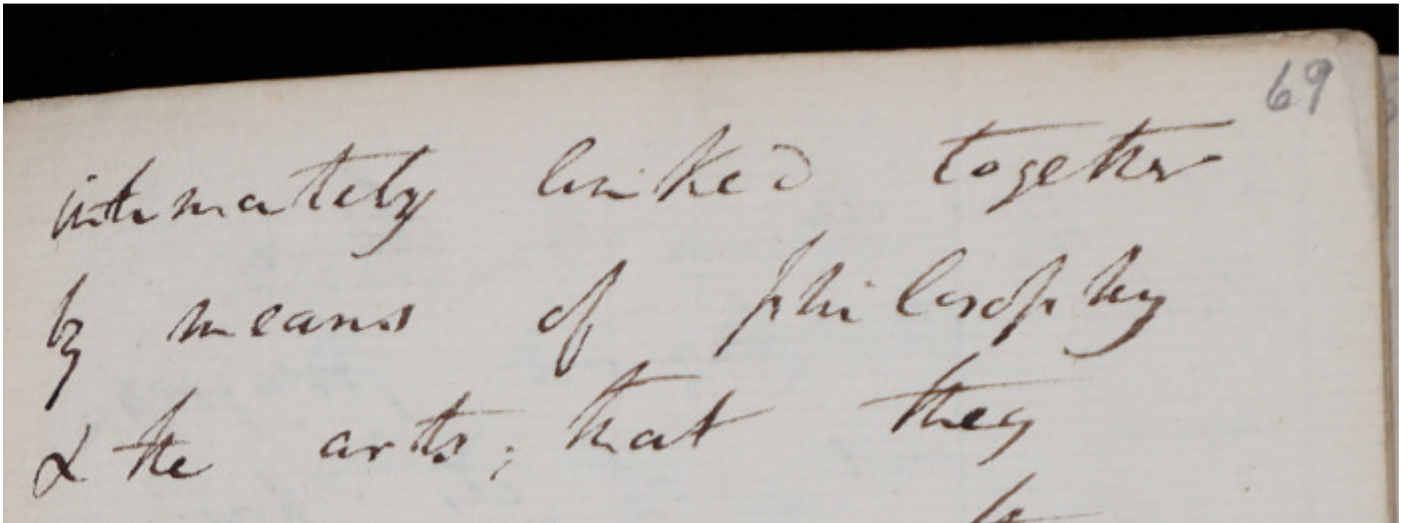 69
intimately linked together
by means of philosophy
& the arts; that they